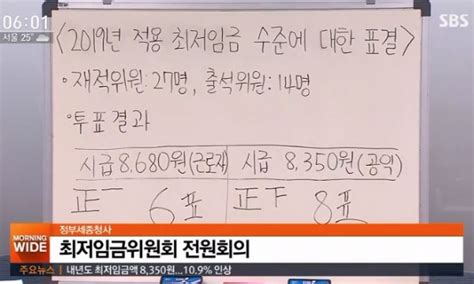 06:01
서울 25°
SBS
<2019년 적용 최저임금 수준에 대한 표결>
· 재적위원: 27명, 출석위원: 14명
· 투표결과
시급 8,680원(근로자) 시급 8,350원(공익)
正一 6표 正下 8표
정부세종청사
MORNING WIDE
최저임금위원회 전원회의
주요뉴스 | 내년도 최저임금액 8,350원...10.9% 인상